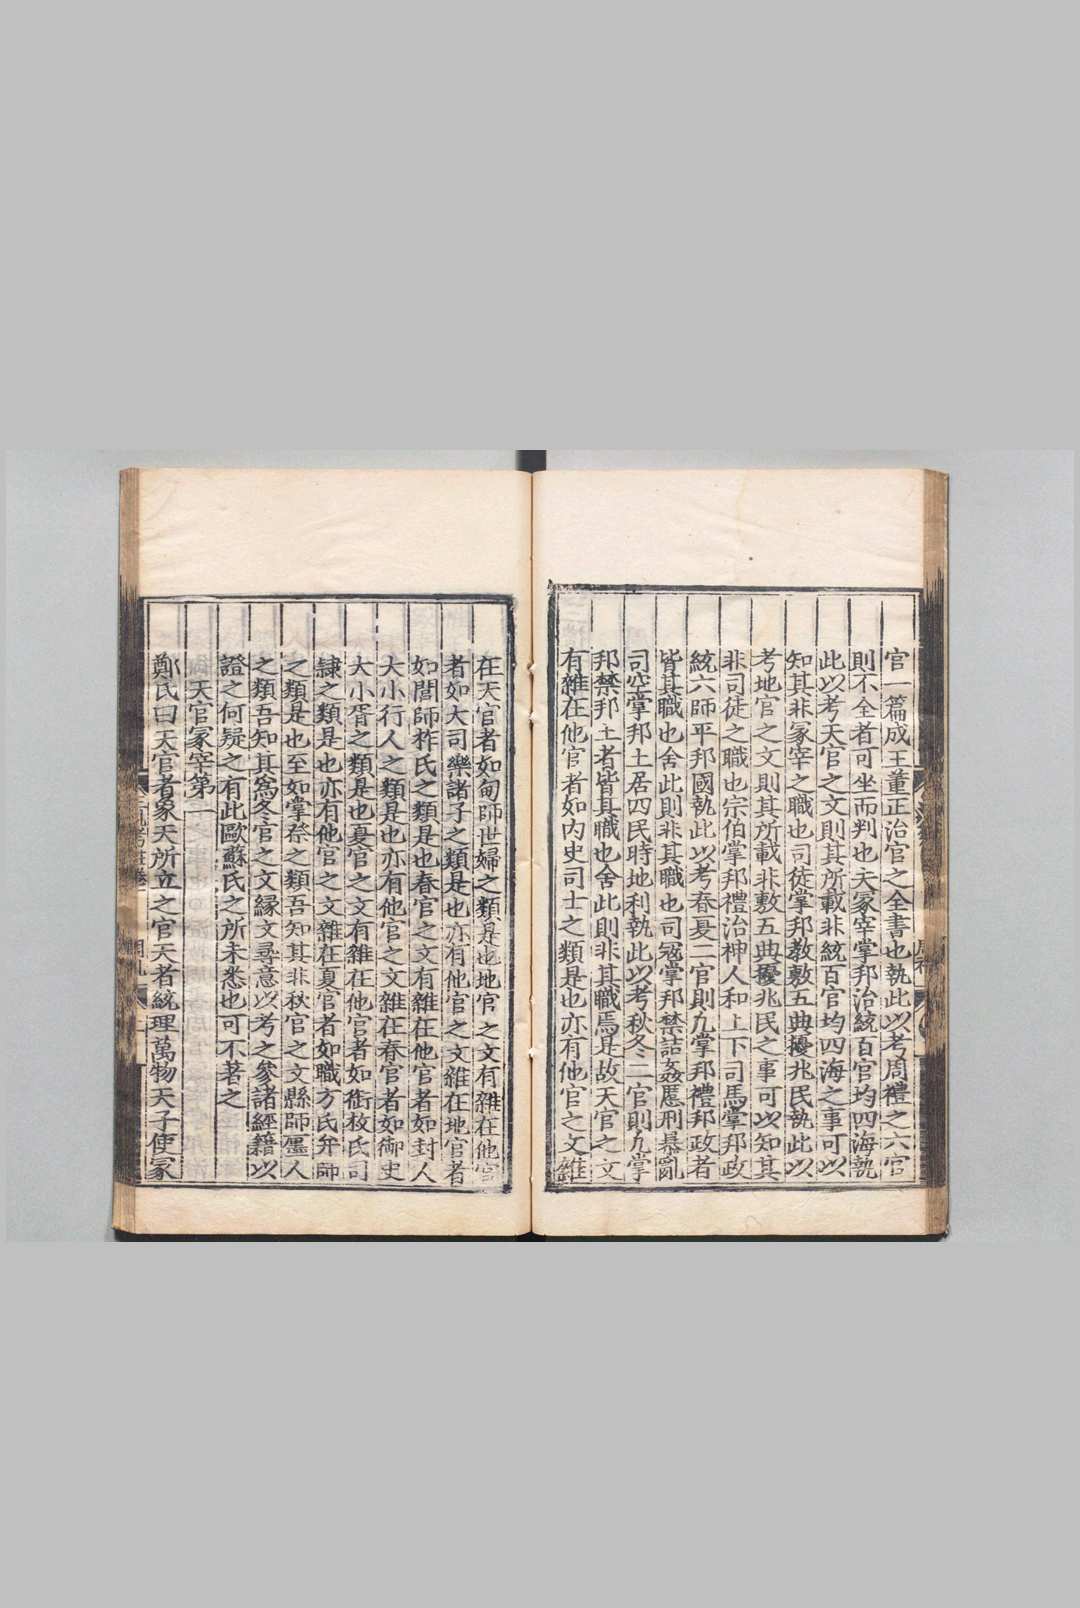 官一篇成王董正治官之全書也執此以考周禮之六官
則不全者可坐而判也夫冢宰掌邦治統百官均四海執
此以考天官之文則其所載非統百官均四海之事可以
知其非冢宰之職也司徒掌邦教敷五典擾兆民執此以
考地官之文則其所載非敷五典擾兆民之事可以知其
非司徒之職也宗伯掌邦禮治神人和上下司馬掌邦政
統六師平邦國執此以考春夏二官則九掌邦禮邦政者
皆其職也舍此則非其職也司冦掌邦禁詰姦慝刑暴亂
司空掌邦土居四民時地利執此以考秋冬二官則九掌
邦禁邦土者皆其職也舍此則非其職焉是故天官之文
有雜在他官者如內史司士之類是也亦有他官之文雜
在天官者如甸師世婦之類是也地官之文有雜在他官
者如大司樂諸子之類是也亦有他官之文雜在地官者
如閭師柞氏之類是也春官之文有雜在他官者如封人
大小行人之類是也亦有他官之文雜在春官者如御史
大小胥之類是也夏官之文有雜在他官者如銜枚氏司
隷之類是也亦有他官之文雜在夏官者如職方氏弁師
之類是也至如掌祭之類吾知其非秋官之文縣師廛人
之類吾知其爲冬官之文緣文尋意以考之參諸經籍以
證之何疑之有此歐蘇氏之所未悉也可不著之
天官冢宰第一
鄭氏曰天官者象天所立之官天者統理萬物天子使冢